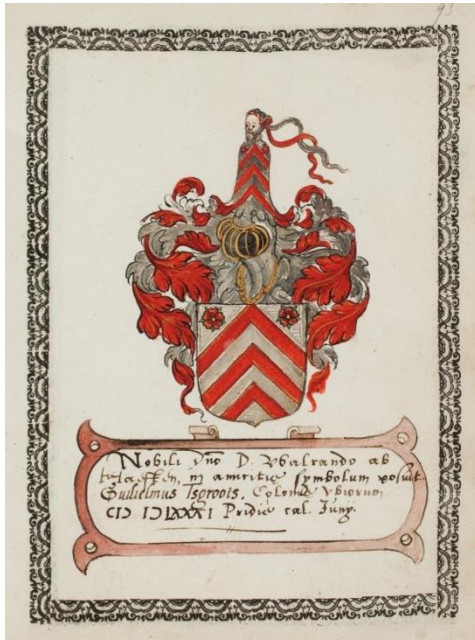 93
Nobili Dno D. Walrando ab
in amicitiæ symbolum posuit
Gulielmus Coloniæ Ubiorum
CIↃ IↃLXXXI Pridie cal. Juny.